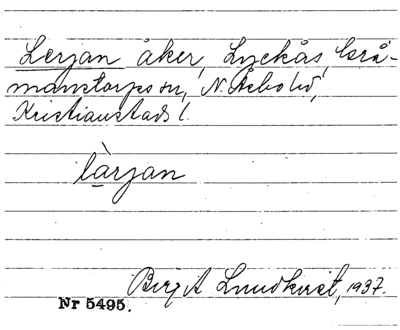 Lerjan åker, Lyckås, Grå-
manstorps sn, N. Åsbo hd,
Kristianstads l.
lärjan
Birgit Lundkvist, 1937.
Nr 5495.